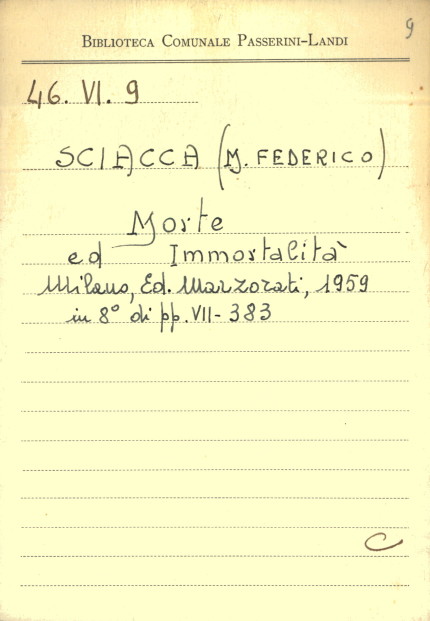 9
BIBLIOTECA COMUNALE PASSERINI-LANDI
46. VI. 9
SCIACCA (M. FEDERICO)
Morte
ed Immortalità
Milano, Ed. Marzorati, 1959
in 8° di pp. VII-383
C